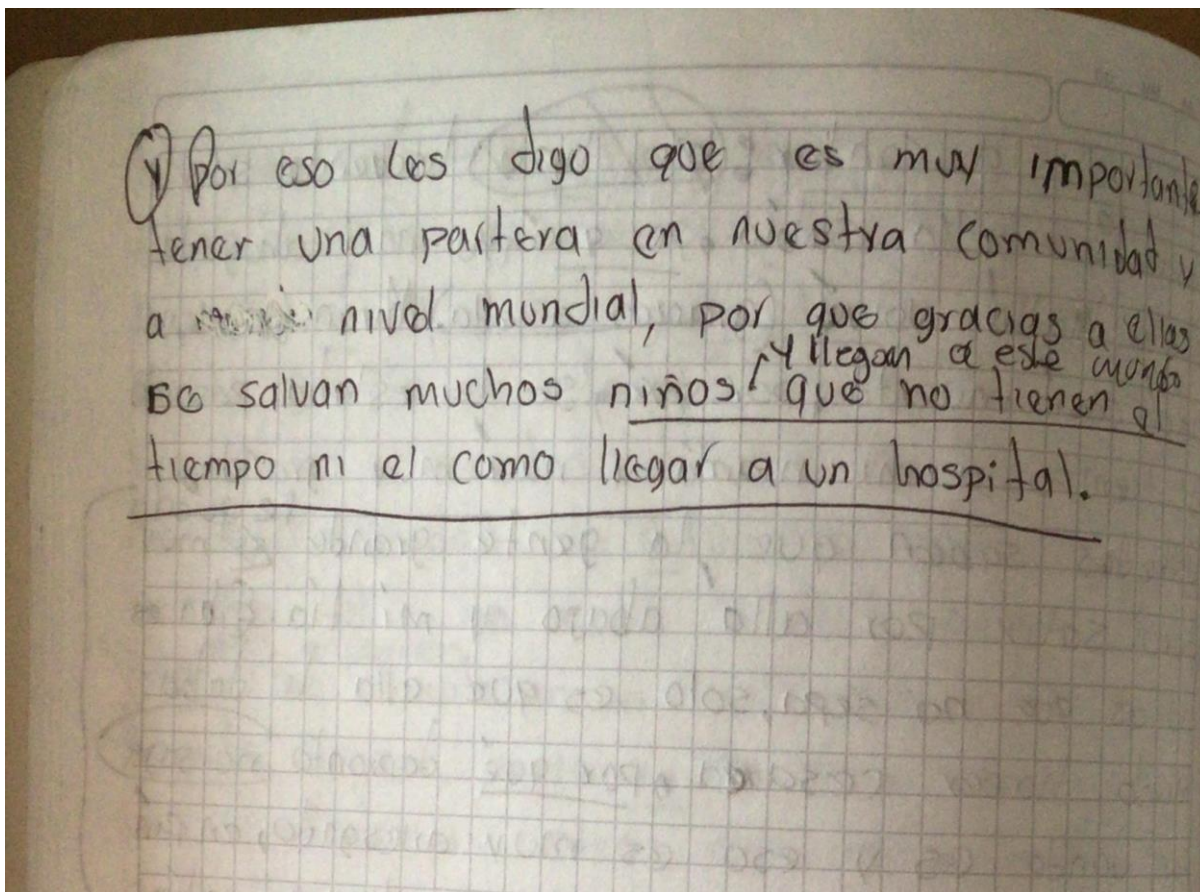 y Por eso les digo que es muy importante
tener una partera en nuestra comunidad y
a nivel mundial, por que gracias a ellas
y llegan a este mundo
se salvan muchos niños que no tienen el
tiempo ni el como llegar a un hospital.